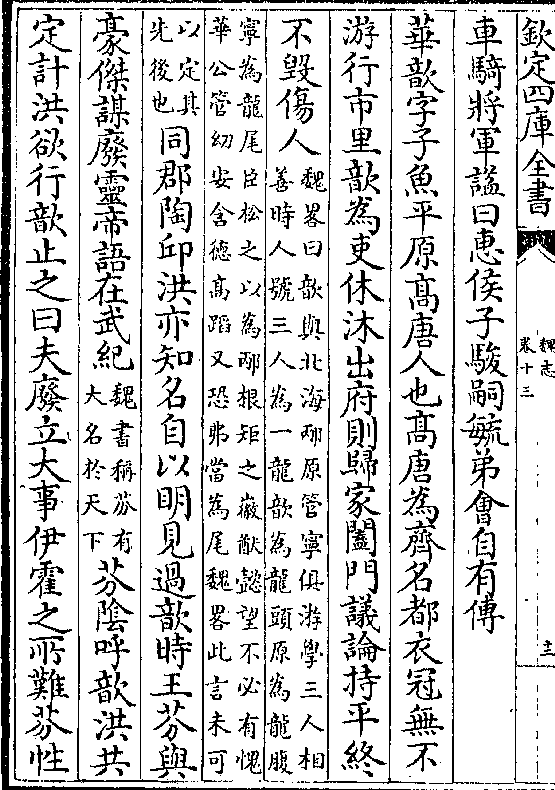 欽定四庫全書
魏志
卷十三
車騎將軍謚曰惠侯子駿嗣毓弟會自有傳
華歆字子魚平原高唐人也高唐為齊名都衣冠無不
游行市里歆為吏休沐出府則歸家闔門議論持平終
不毀傷人
魏畧曰歆與北海邴原管寧俱游學三人相
善時人號三人為一龍歆為龍頭原為龍腹
寧為龍尾臣松之以為邴根矩之徽猷懿望不必有愧
華公管幼安含德高蹈又恐弗當為尾魏畧此言未可
以定其
先後也
同郡陶邱洪亦知名自以明見過歆時王芬與
豪傑謀廢靈帝語在武紀
魏書稱芬有
大名於天下
芬陰呼歆洪共
定計洪欲行歆止之曰夫廢立大事伊霍之所難芬性